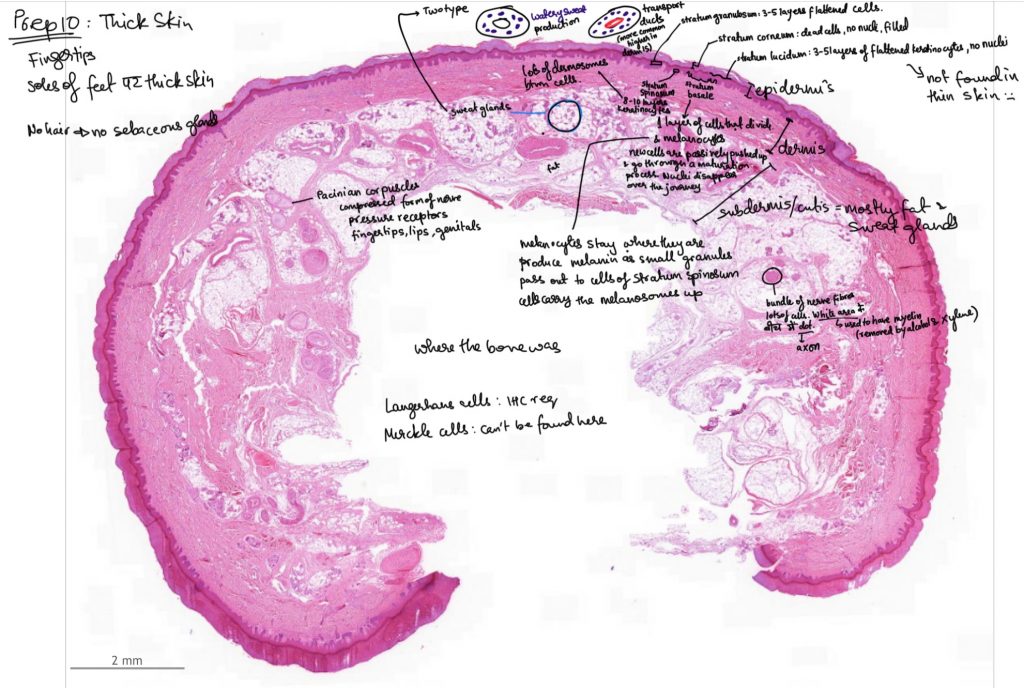 Prep 10: Thick Skin
Fingertips
soles of feet
thick skin
No hair → no sebaceous glands
Two type
watery sweat
production
transport
ducts
(more common
higher in
dermis)
stratum granulosum: 3-5 layers flattened cells.
stratum corneum: dead cells, no nuclei, filled
stratum lucidum: 3-5 layers of flattened keratinocytes, no nuclei
↳ not found in
thin skin
lots of desmosomes
btwn cells.
stratum
spinosum
8-10 layers
keratinocytes
stratum
basale
epidermis
sweat glands
1 layer of cells that divide
& melanocytes
new cells are passively pushed up
& go through a maturation
process. Nuclei disappear
over the journey
dermis
fat
Pacinian corpuscles
compressed form of nerve
pressure receptors
fingertips, lips, genitals
subdermis/cutis = mostly fat &
sweat glands
melanocytes stay where they are
produce melanin as small granules
pass out to cells of stratum spinosum
cells carry the melanosomes up
bundle of nerve fibres
lots of cells. White area
dot
↳ used to have myelin
(removed by alcohol & xylene)
axon
where the bone was
Langerhans cells: IHC req
Merckle cells: can't be found here
2 mm